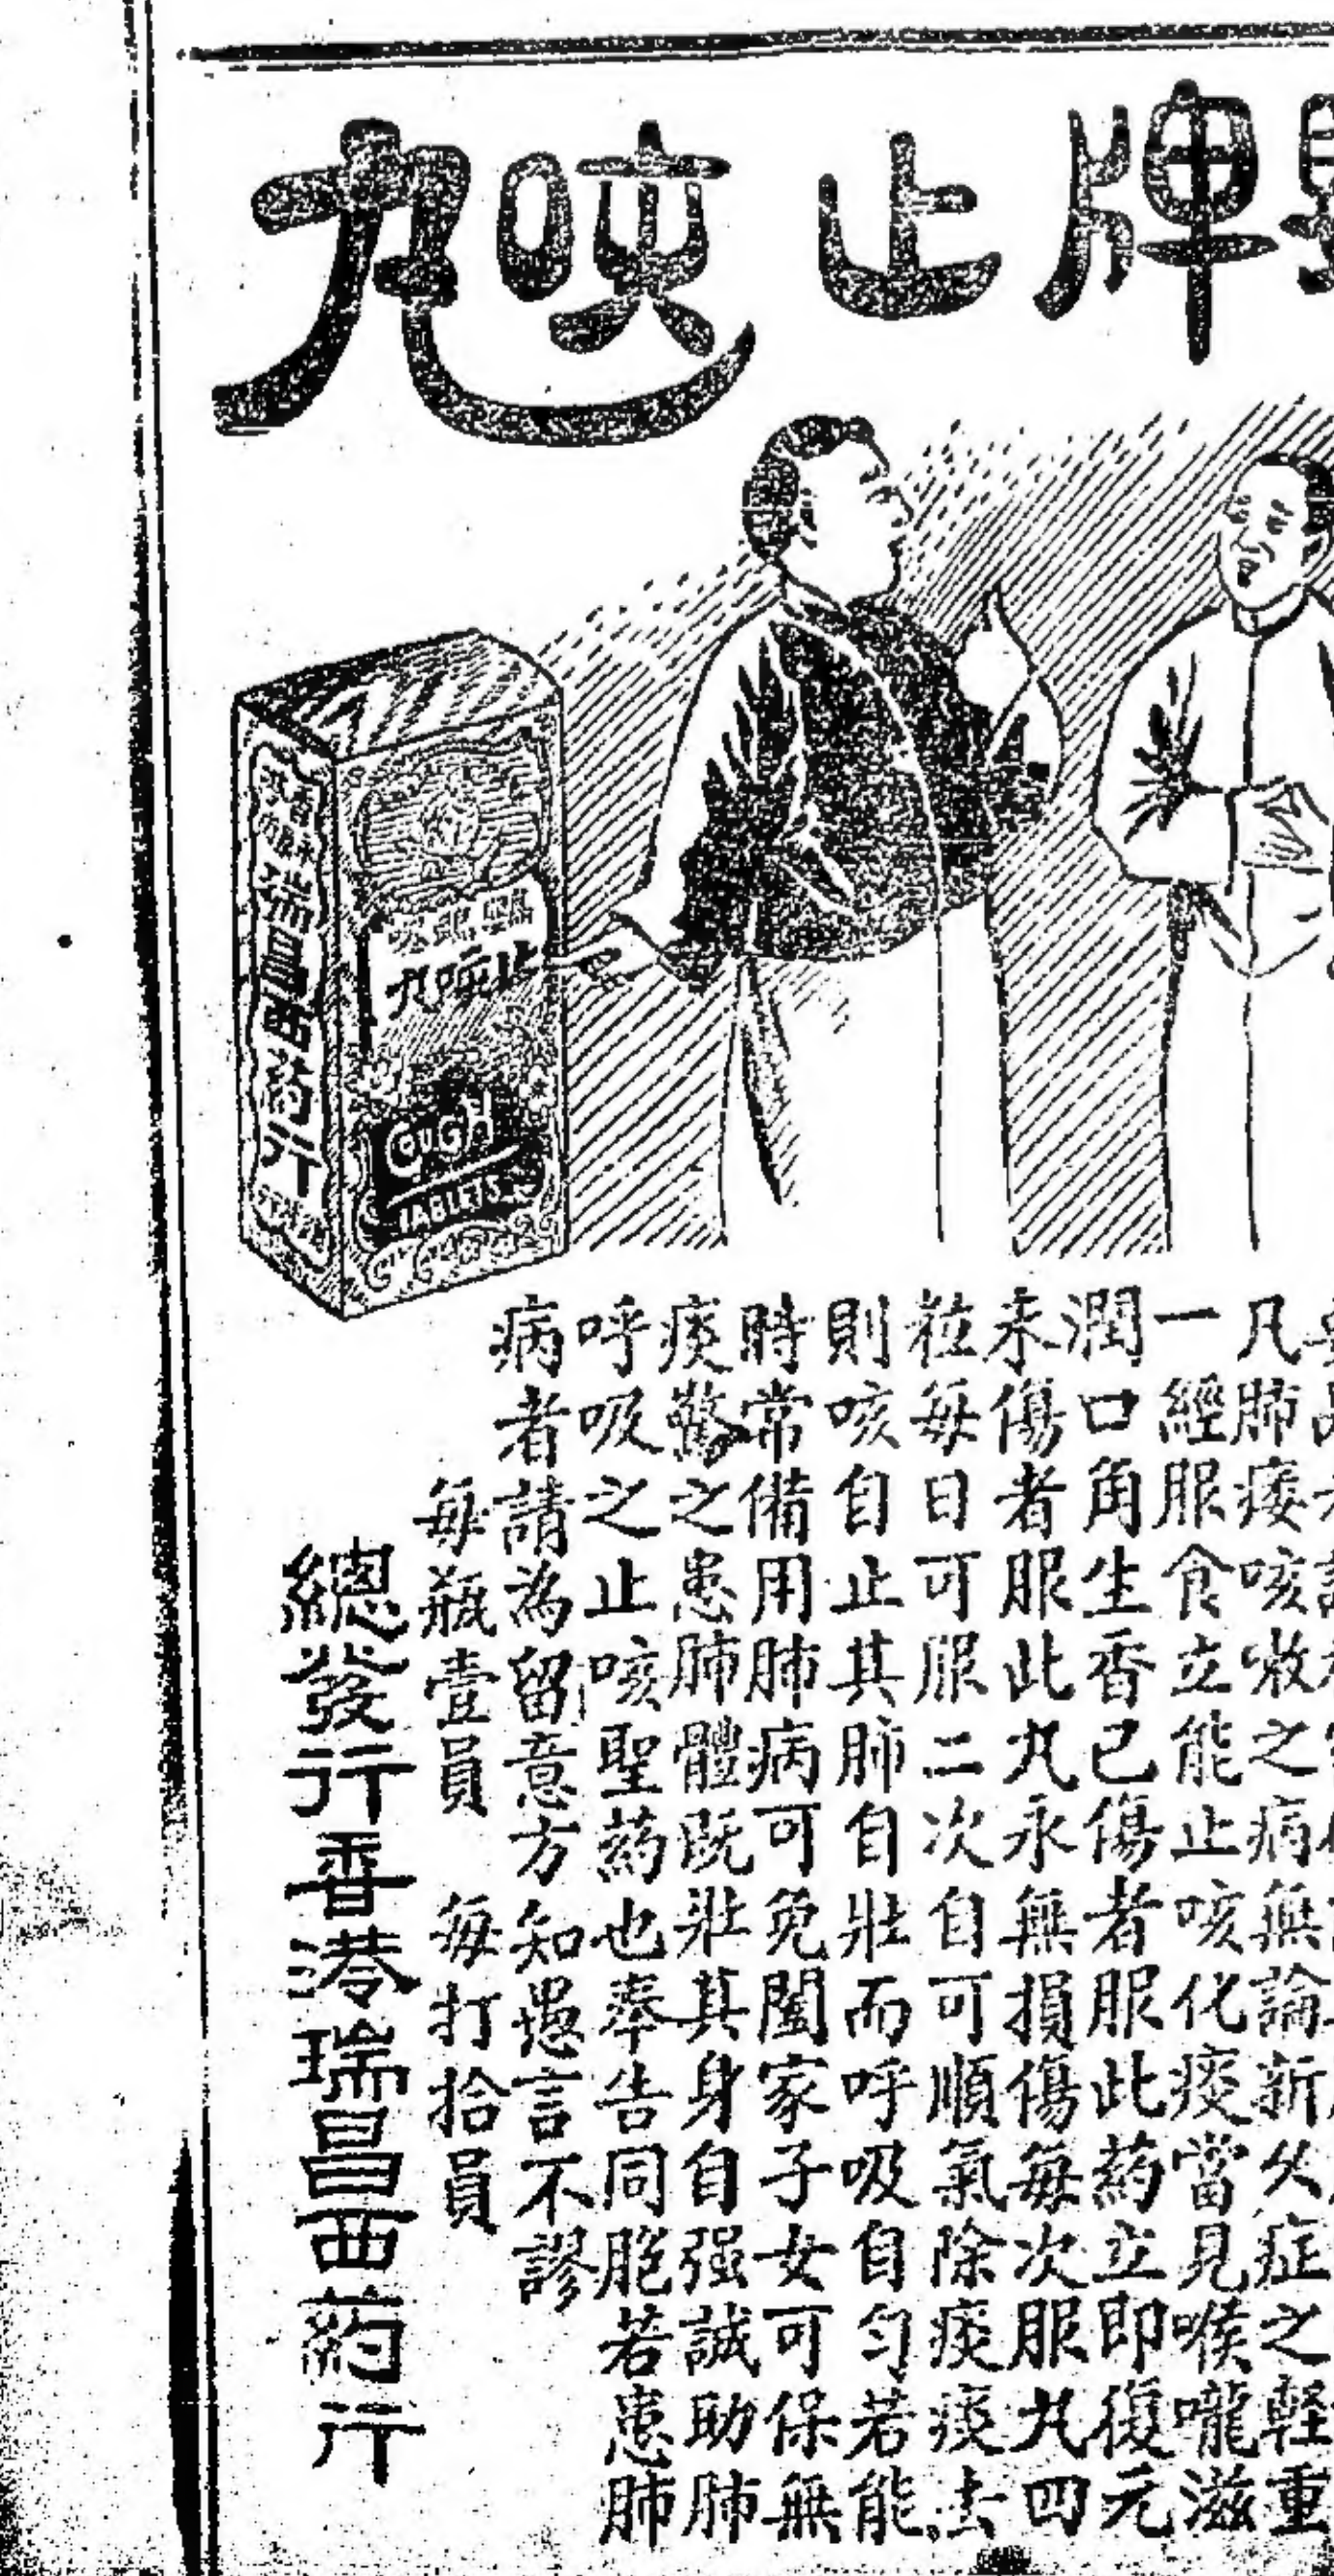 牌止咳丸
止咳丸
COUGH
TABLETS
瑞昌西葯行
凡肺痿咳嗽之病無論新久症之軽重
一經服食立能止咳化痰當見喉嚨滋
潤口角生香已傷者服此葯立即復元
未傷者服此丸永無損傷每次服丸四
粒每日可服二次自可順氣除痰痰去
則咳自止其肺自壯而呼吸自匀若能
時常備用肺病可免闔家子女可保無
痰驚之患肺體既壯其身自强誠助肺
呼吸之止咳聖葯也奉告同胞若患肺
病者請為留意方知愚言不謬
每瓶壹員　每打拾員
總發行香港瑞昌西葯行